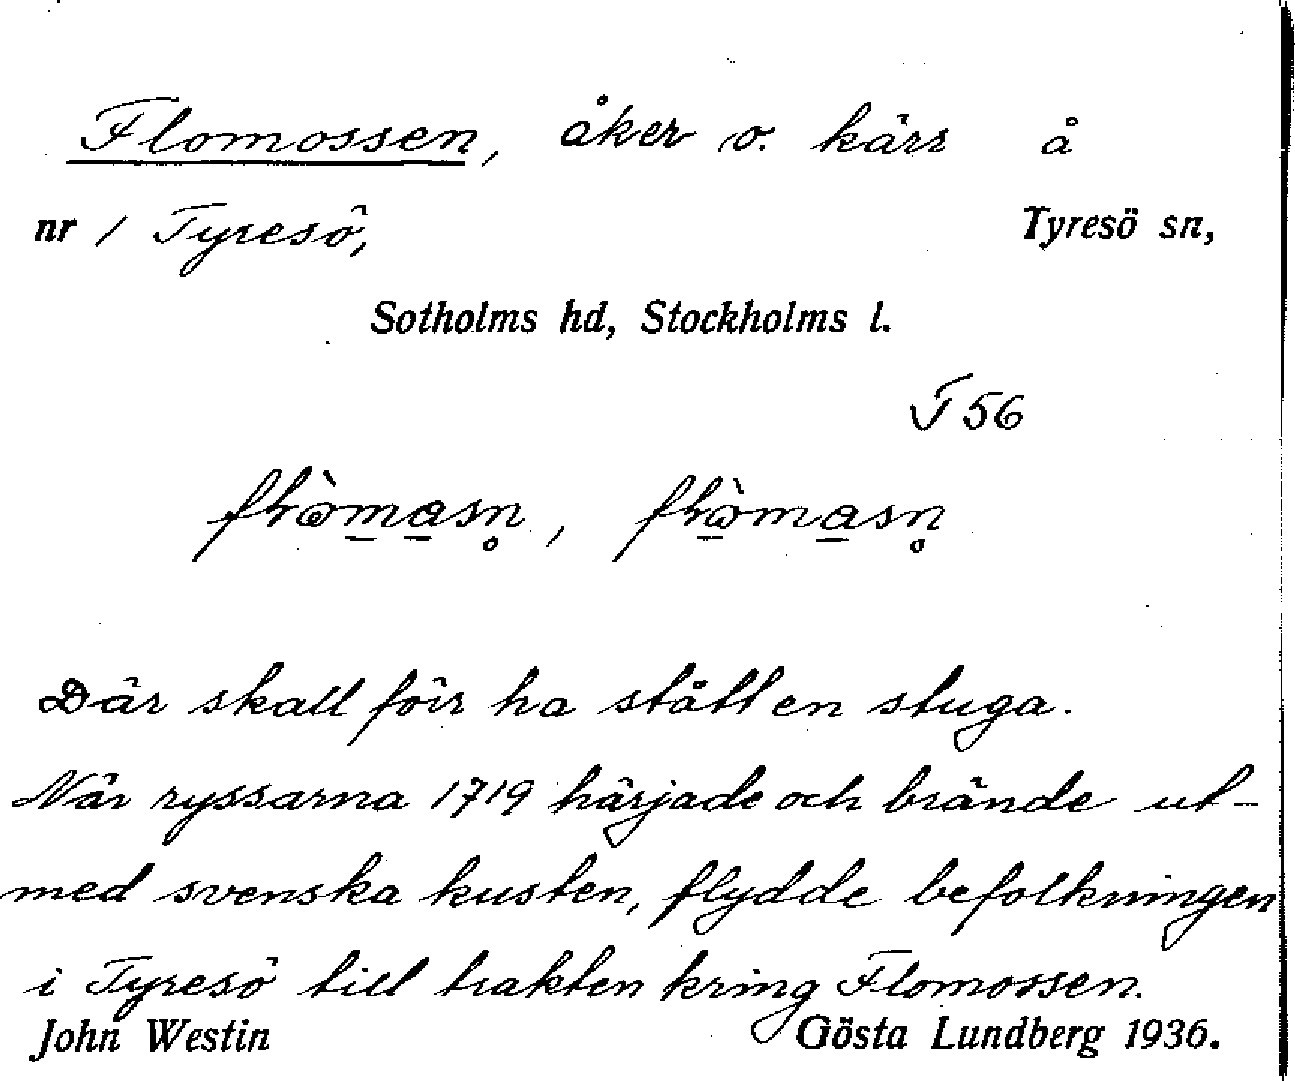 Flomossen, åker o. kärr å
nr 1 Tyresö, Tyresö sn,
Sotholms hd, Stockholms l.
T 56
Där skall förr ha stått en stuga.
När ryssarna 1719 härjade och brände ut-
med svenska kusten, flydde befolkningen
i Tyresö till trakten kring Flomossen.
John Westin Gösta Lundberg 1936.